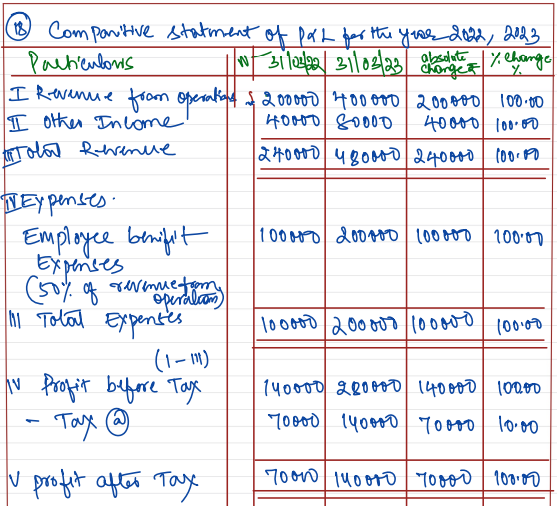 (18) Comparitive statment of P&L for the year 2022, 2023
Particulars N 31/03/22 31/03/23 absolute change ₹ % change %
I Revenue from operations 200000 400000 200000 100.00
II Other Income 40000 80000 40000 100.00
III Total Revenue 240000 480000 240000 100.00
IV Expenses.
Employee benifit 100000 200000 100000 100.00
Expenses
(50% of revenue from
operations)
III Total Expenses 100000 200000 100000 100.00
(I-III)
IV Profit before Tax 140000 280000 140000 100.00
- Tax @ 70000 140000 70000 10.00
V profit after Tax 70000 140000 70000 100.00